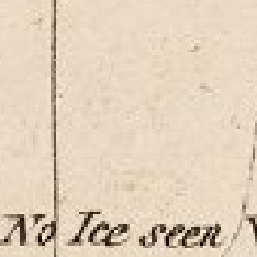 No Ice seen